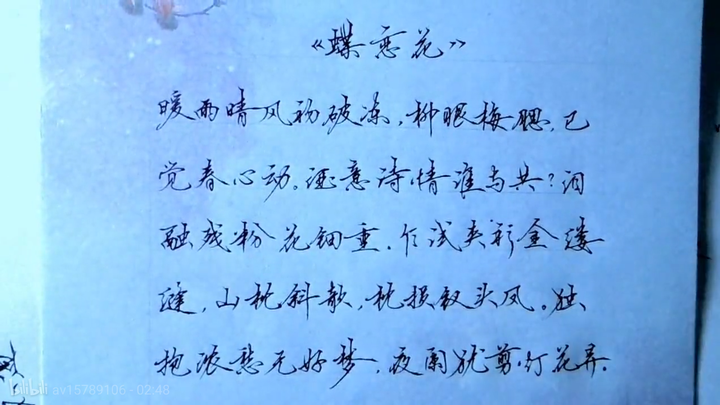 《蝶恋花》
暖雨晴风初破冻，柳眼梅腮，已
觉春心动。酒意诗情谁与共？泪
融残粉花钿重。乍试夹衫金缕
缝，山枕斜欹，枕损钗头凤。独
抱浓愁无好梦，夜阑犹剪灯花弄。
bilibili av15789106 - 02:48